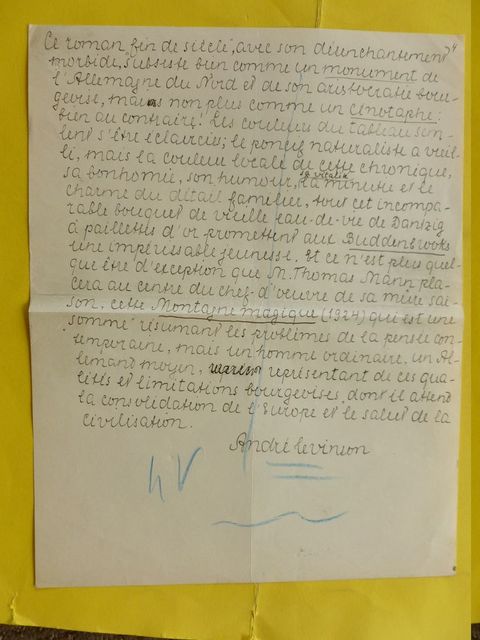 4
Ce roman „fin de siècle", avec son désenchantement
morbide, subsiste bien comme un monument de
l'Allemagne du Nord et de son aristocratie bour-
geoise, mais non plus comme un cénotaphe:
bien au contraire! Les couleurs du tableau sem-
blent s'être éclaircies; le poncif naturaliste a vieil-
li, mais la couleur locale de cette chronique,
sa bonhomie, son humour, sa minutie et le
charme du détail familier, tout cet incompa-
rable bouquet de vieille eau-de-vie de Dantzig
à paillettes d'or promettent aux Buddenbrooks
une impérissable jeunesse. Et ce n'est plus quel-
que être d'exception que M. Thomas Mann pla-
cera au centre du chef-d'œuvre de sa mûre sai-
son, cette Montagne magique (1924) qui est une
„somme" résumant les problèmes de la pensée con-
temporaine, mais un homme ordinaire, un Al-
lemand moyen, représentant de ces qua-
lités et limitations bourgeoises dont il attend
la consolidation de l'Europe et le salut de la
civilisation.
André Levinson